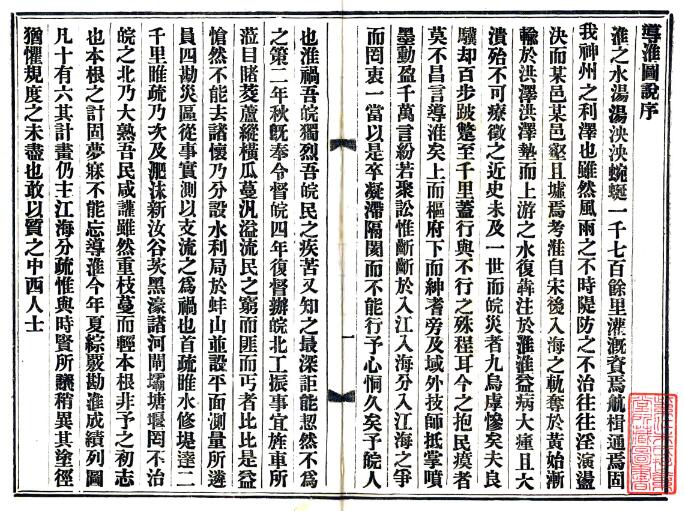 導淮圖說序
淮之水湯湯泱泱蜿蜒一千七百餘里灌漑資焉航楫通焉固
我神州之利澤也雖然風雨之不時隄防之不治往往淫演盪
決而某邑某邑壑且墟焉考淮自宋後入海之軌奪於黃始漸
輸於洪澤洪澤墊而上游之水復犇注於淮淮益病大癰且大
潰殆不可療徵之近史未及一世而皖災者九烏虖慘矣夫良
驥却百步跛鼈至千里蓋行與不行之殊程耳今之抱民瘼者
莫不昌言導淮矣上而樞府下而紳耆旁及域外技師抵掌噴
墨動盈千萬言紛若聚訟惟斷斷於入江入海分入江海之爭
而罔衷一當以是卒凝滯隔閡而不能行予心恫久矣予皖人
也淮禍吾皖獨烈吾皖民之疾苦又知之最深詎能恝然不爲
之第二年秋旣奉令督皖四年復督辦皖北工振事宜旌車所
蒞目睹菱蘆縱橫瓜蔓汎溢流民之窮而匪而丐者比比是益
愴然不能去諸懷乃分設水利局於蚌山並設平面測量所遴
員四勘災區從事實測以支流之爲禍也首疏睢水修堤達二
千里睢疏乃次及淝沫新汝谷茨黑濠諸河閘壩塘堰罔不治
皖之北乃大熟吾民咸讙雖然重枝蔓而輕本根非予之初志
也本根之計固夢寐不能忘導淮今年夏綜嚴勘淮成績列圖
凡十有六其計畫仍主江海分疏惟與時賢所議稍異其塗徑
猶懼規度之未盡也敢以質之中西人士
一